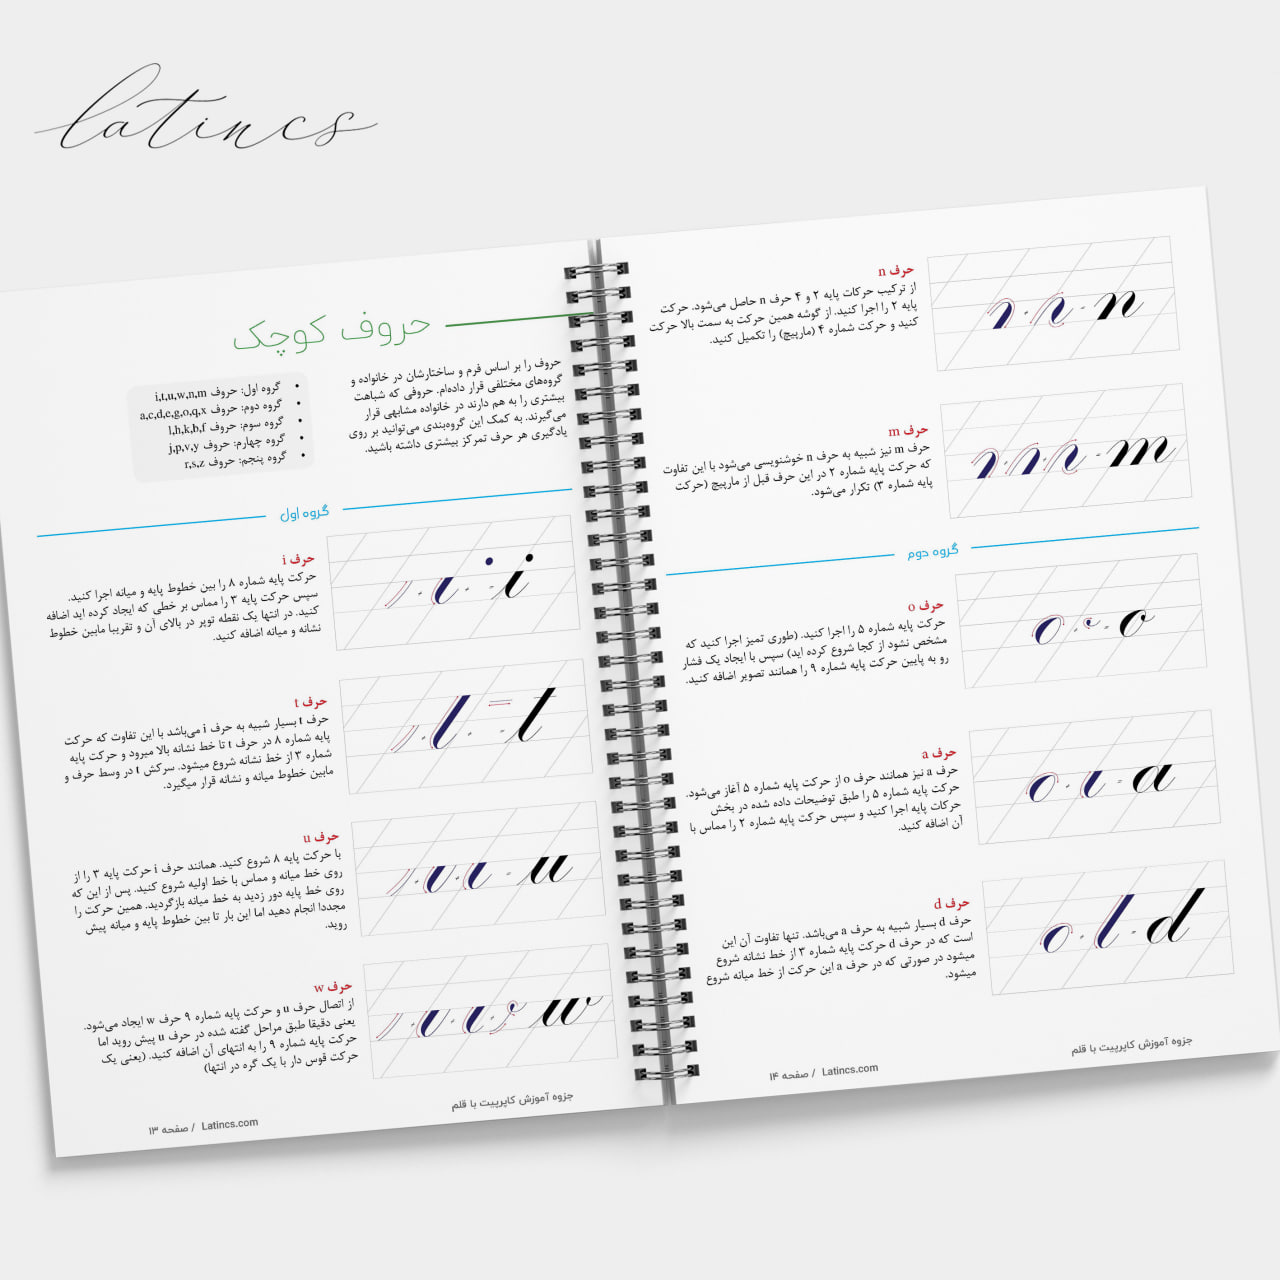 latincs
حروف کوچک
حروف را بر اساس فرم و ساختارشان در خانواده و
گروه‌های مختلفی قرار داده‌ام. حروفی که شباهت
بیشتری را به هم دارند در خانواده مشابهی قرار
می‌گیرند. به کمک این گروه‌بندی می‌توانید بر روی
یادگیری هر حرف تمرکز بیشتری داشته باشید.
• گروه اول: حروف i,t,u,w,n,m
• گروه دوم: حروف a,c,d,e,g,o,q,x
• گروه سوم: حروف l,h,k,b,f
• گروه چهارم: حروف j,p,v,y
• گروه پنجم: حروف r,s,z
گروه اول
حرف i
حرکت پایه شماره ۸ را بین خطوط پایه و میانه اجرا کنید.
سپس حرکت پایه ۳ را مماس بر خطی که ایجاد کرده اید اضافه
کنید. در انتها یک نقطه توپر در بالای آن و تقریبا مابین خطوط
نشانه و میانه اضافه کنید.
i
حرف t
حرف t بسیار شبیه به حرف i می‌باشد با این تفاوت که حرکت
پایه شماره ۸ در حرف t تا خط نشانه بالا میرود و حرکت پایه
شماره ۳ از خط نشانه شروع میشود. سرکش t در وسط حرف و
مابین خطوط میانه و نشانه قرار میگیرد.
t
حرف u
با حرکت پایه ۸ شروع کنید. همانند حرف i حرکت پایه ۳ را از
روی خط میانه و مماس با خط اولیه شروع کنید. پس از این که
روی خط پایه دور زدید به خط میانه بازگردید. همین حرکت را
مجددا انجام دهید اما این بار تا بین خطوط پایه و میانه پیش
روید.
u
حرف w
از اتصال حرف u و حرکت پایه شماره ۹ حرف w ایجاد می‌شود.
یعنی دقیقا طبق مراحل گفته شده در حرف u پیش روید اما
حرکت پایه شماره ۹ را به انتهای آن اضافه کنید. (یعنی یک
حرکت قوس دار با یک گره در انتها)
w
جزوه آموزش کاپرپیت با قلم
Latincs.com / صفحه ۱۳
حرف n
از ترکیب حرکات پایه ۲ و ۴ حرف n حاصل می‌شود. حرکت
پایه ۲ را اجرا کنید. از گوشه همین حرکت به سمت بالا حرکت
کنید و حرکت شماره ۴ (مارپیچ) را تکمیل کنید.
n
حرف m
حرف m نیز شبیه به حرف n خوشنویسی می‌شود با این تفاوت
که حرکت پایه شماره ۲ در این حرف قبل از مارپیچ (حرکت
پایه شماره ۳) تکرار می‌شود.
m
گروه دوم
حرف o
حرکت پایه شماره ۵ را اجرا کنید. (طوری تمیز اجرا کنید که
مشخص نشود از کجا شروع کرده اید) سپس با ایجاد یک فشار
رو به پایین حرکت پایه شماره ۹ را همانند تصویر اضافه کنید.
o
حرف a
حرف a نیز همانند حرف o از حرکت پایه شماره ۵ آغاز می‌شود.
حرکت پایه شماره ۵ را طبق توضیحات داده شده در بخش
حرکات پایه اجرا کنید و سپس حرکت پایه شماره ۲ را مماس با
آن اضافه کنید.
a
حرف d
حرف d بسیار شبیه به حرف a می‌باشد. تنها تفاوت آن این
است که در حرف d حرکت پایه شماره ۳ از خط نشانه شروع
میشود در صورتی که در حرف a این حرکت از خط میانه شروع
میشود.
d
جزوه آموزش کاپرپیت با قلم
Latincs.com / صفحه ۱۴